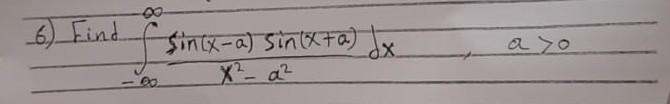 6) Find ∫_{-∞}^{∞} \frac{sin(x-a) sin(x+a)}{x² - a²} dx , a > 0